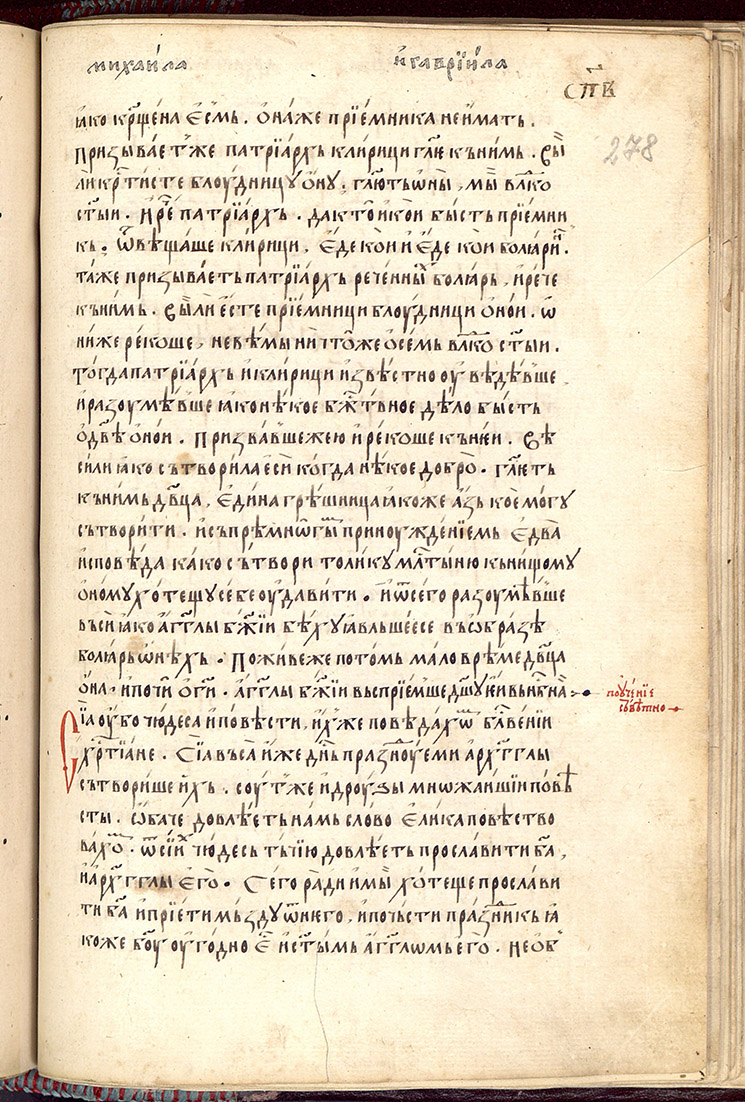 михаи́ла и҆гаврїи́ла
спв҃
278
ꙗко кр҃щена є҆смь . ѻ҆на́же прїе́мника неи́мать .
призывает̾же патрїа́рхь кли́рици гл҃ѥ кьни́мь . Бы́
ли кр҃тисте блоудни́цу ѻ҆ну . гл҃ють ѻ҆ны̀ , мы̀ влⷣко
ст҃ыи . И҆рѐ патрїа́рхь . дакто̀ и҆кои бы́сть прїе́мни
кь . Ѿвѣщаше кли́рици . Є҆де кои и҆ є҆де кои болꙗриⷩ҇ .
та́же призыва́еть патрїа́рхь рече́нныⷯ болꙗрь , и҆рече
кьни́мь . Бы́ли є҆сте прїе́мници блоудни́ци ѻ҆нои . ѻ҆
ни́же ре́коше , невѣ́мы ничто́же ѻ҆се́мь влⷣко ст҃ыи .
То́гда патрїа́рхь и҆кли́рици и҆звѣ́стно оу҆вѣдѣ́вше
и҆разоумѣ́вше ꙗко нѣ́кое бж҃твное дѣ́ло бы́сть
ѻ҆двⷣѣ ѻ҆нои . призва́вшежею и҆ре́коше кьнеи . вѣ
си́ли ꙗко сьтвори́ла є҆сѝ ко́гда нѣ́кое добро̀ . гл҃ѥть
кьни́мь дв҃ца , є҆ди́на грѣ́шница ꙗкоже а҆зь кое́ могу
сьтвори́ти . и҆сьпрѣмно́гыⷨ приноужде́нїемь є҆два̀
и҆сповѣ́да ка́ко сьтвори толи́ку млⷭ҇тыню кьни́щому
ѻ҆ному хо́тещу себе оу҆дави́ти . и҆ѿсего̀ разоумѣ́вше
вьсѝ ꙗко а҆гг҃лы бж҃їи бѣ́ху ꙗвльшеесе вьѻ҆бразѣ
болꙗрь ѻ҆нѣхь . Поживе́же пото́мь ма́ло врѣ́ме дв҃ца
ѻ҆на̀ , и҆почи ѡ҆гѝ . а҆гг҃лы бж҃їи вьсприе́мше дш҃у є҆и вьнбⷭ҇на
поуче́нїе
съвѣ́тно
Сїа оу҆бо чюдеса̀ и҆по́вѣсти , и҆хже повѣ́дахѡⷨ блⷭ҇ве́нїи
хрⷭ҇тїане . Сїа вьса̀ и҆же дн҃ь пра́зноуеми а҆рха́гг҃лы
сьтвори́ше и҆хь . соут̾же и҆дроузы мнѡжа́ишїи повѣ
сты . Ѻ҆баче довлѣ́еть на́мь сло́во є҆ли́ка повѣ́ство
вахѡⷨ . ѿси́хⷯ чюде́сь тьчїю довлѣ́еть просла́вити бг҃а ,
и҆а҆рха́гг҃лы є҆го̀ . Сего̀ ра́ди и҆мы̀ хо́теще просла́ви
ти бг҃а и҆прїе́ти мьзду ѿнѥго , и҆почьсти пра́зⷣникь ꙗ
коже бг҃оу оу҆го́дно є҆ⷭ҇ и҆ст҃ы́мь а҆гг҃лѡмь є҆го̀ . неѻ҆б̾